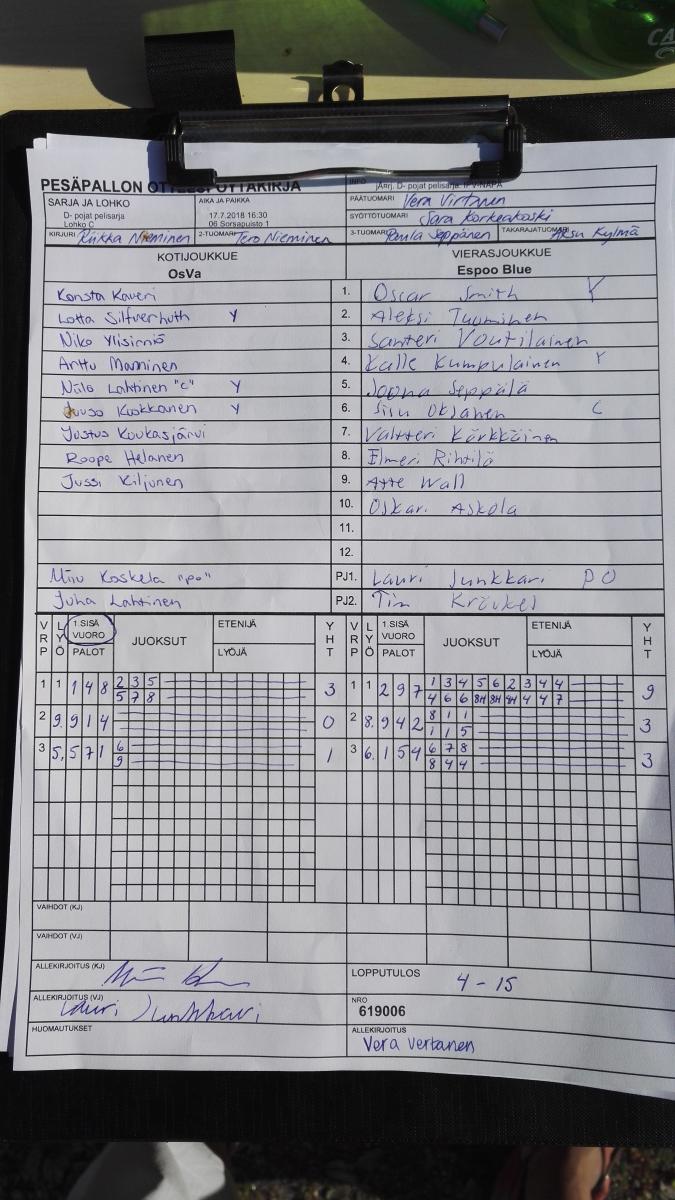 PESÄPALLON OTTELUPÖYTÄKIRJA
INFO
jÄrrj. D- pojat pelisarja. IPV-NAPA
SARJA JA LOHKO
AIKA JA PAIKKA
PÄÄTUOMARI Vera Virtanen
D- pojat pelisarja
Lohko C
17.7.2018 16:30
06 Sorsapuisto 1
SYÖTTÖTUOMARI Sara Korkeakoski
KIRJURI Riikka Nieminen 2-TUOMARI Tero Nieminen 3-TUOMARI Paula Seppänen TAKARAJATUOMARI Aksu Kylmä
KOTIJOUKKUE VIERASJOUKKUE
OsVa Espoo Blue
Konsta Kaveri 1. Oscar Smith Y
Lotta Silfverhuth Y 2. Aleksi Tuominen
Niko Ylisirniö 3. Santeri Voutilainen
Arttu Manninen 4. Kalle Kumpulainen Y
Niilo Lahtinen "c" Y 5. Joona Seppälä
Juuso Kuokkanen Y 6. Sisu Oksanen C
Justus Koukasjärvi 7. Valtteri Kärkkäinen
Roope Helanen 8. Elmeri Rihtilä
Jussi Kiljunen 9. Atte Wall
10. Oskari Askola
11.
12.
Miiu Koskela "po" PJ1. Lauri Junkkari PO
Juha Lahtinen PJ2. Tim
VRP LYÖ 1.SISÄ VUORO PALOT JUOKSUT ETENIJÄ LYÖJÄ YHT VRP LYÖ 1.SISÄ VUORO PALOT JUOKSUT ETENIJÄ LYÖJÄ YHT
1 1 1 4 8 2 3 5 3 1 1 2 9 7 1 3 4 5 6 2 3 4 4 9
5 7 8 4 6 6 8H 8H 8H 4 4 7
2 9. 9 1 4 0 2 8. 9 4 2 8 1 1 3
1 1 5
3 5. 5 7 1 6 1 3 6. 1 5 4 6 7 8 3
9 8 4 4
VAIHDOT (KJ)
VAIHDOT (VJ)
ALLEKIRJOITUS (KJ) LOPPUTULOS 4 - 15
ALLEKIRJOITUS (VJ) Lauri Junkkari NRO
619006
HUOMAUTUKSET ALLEKIRJOITUS
Vera Vertanen